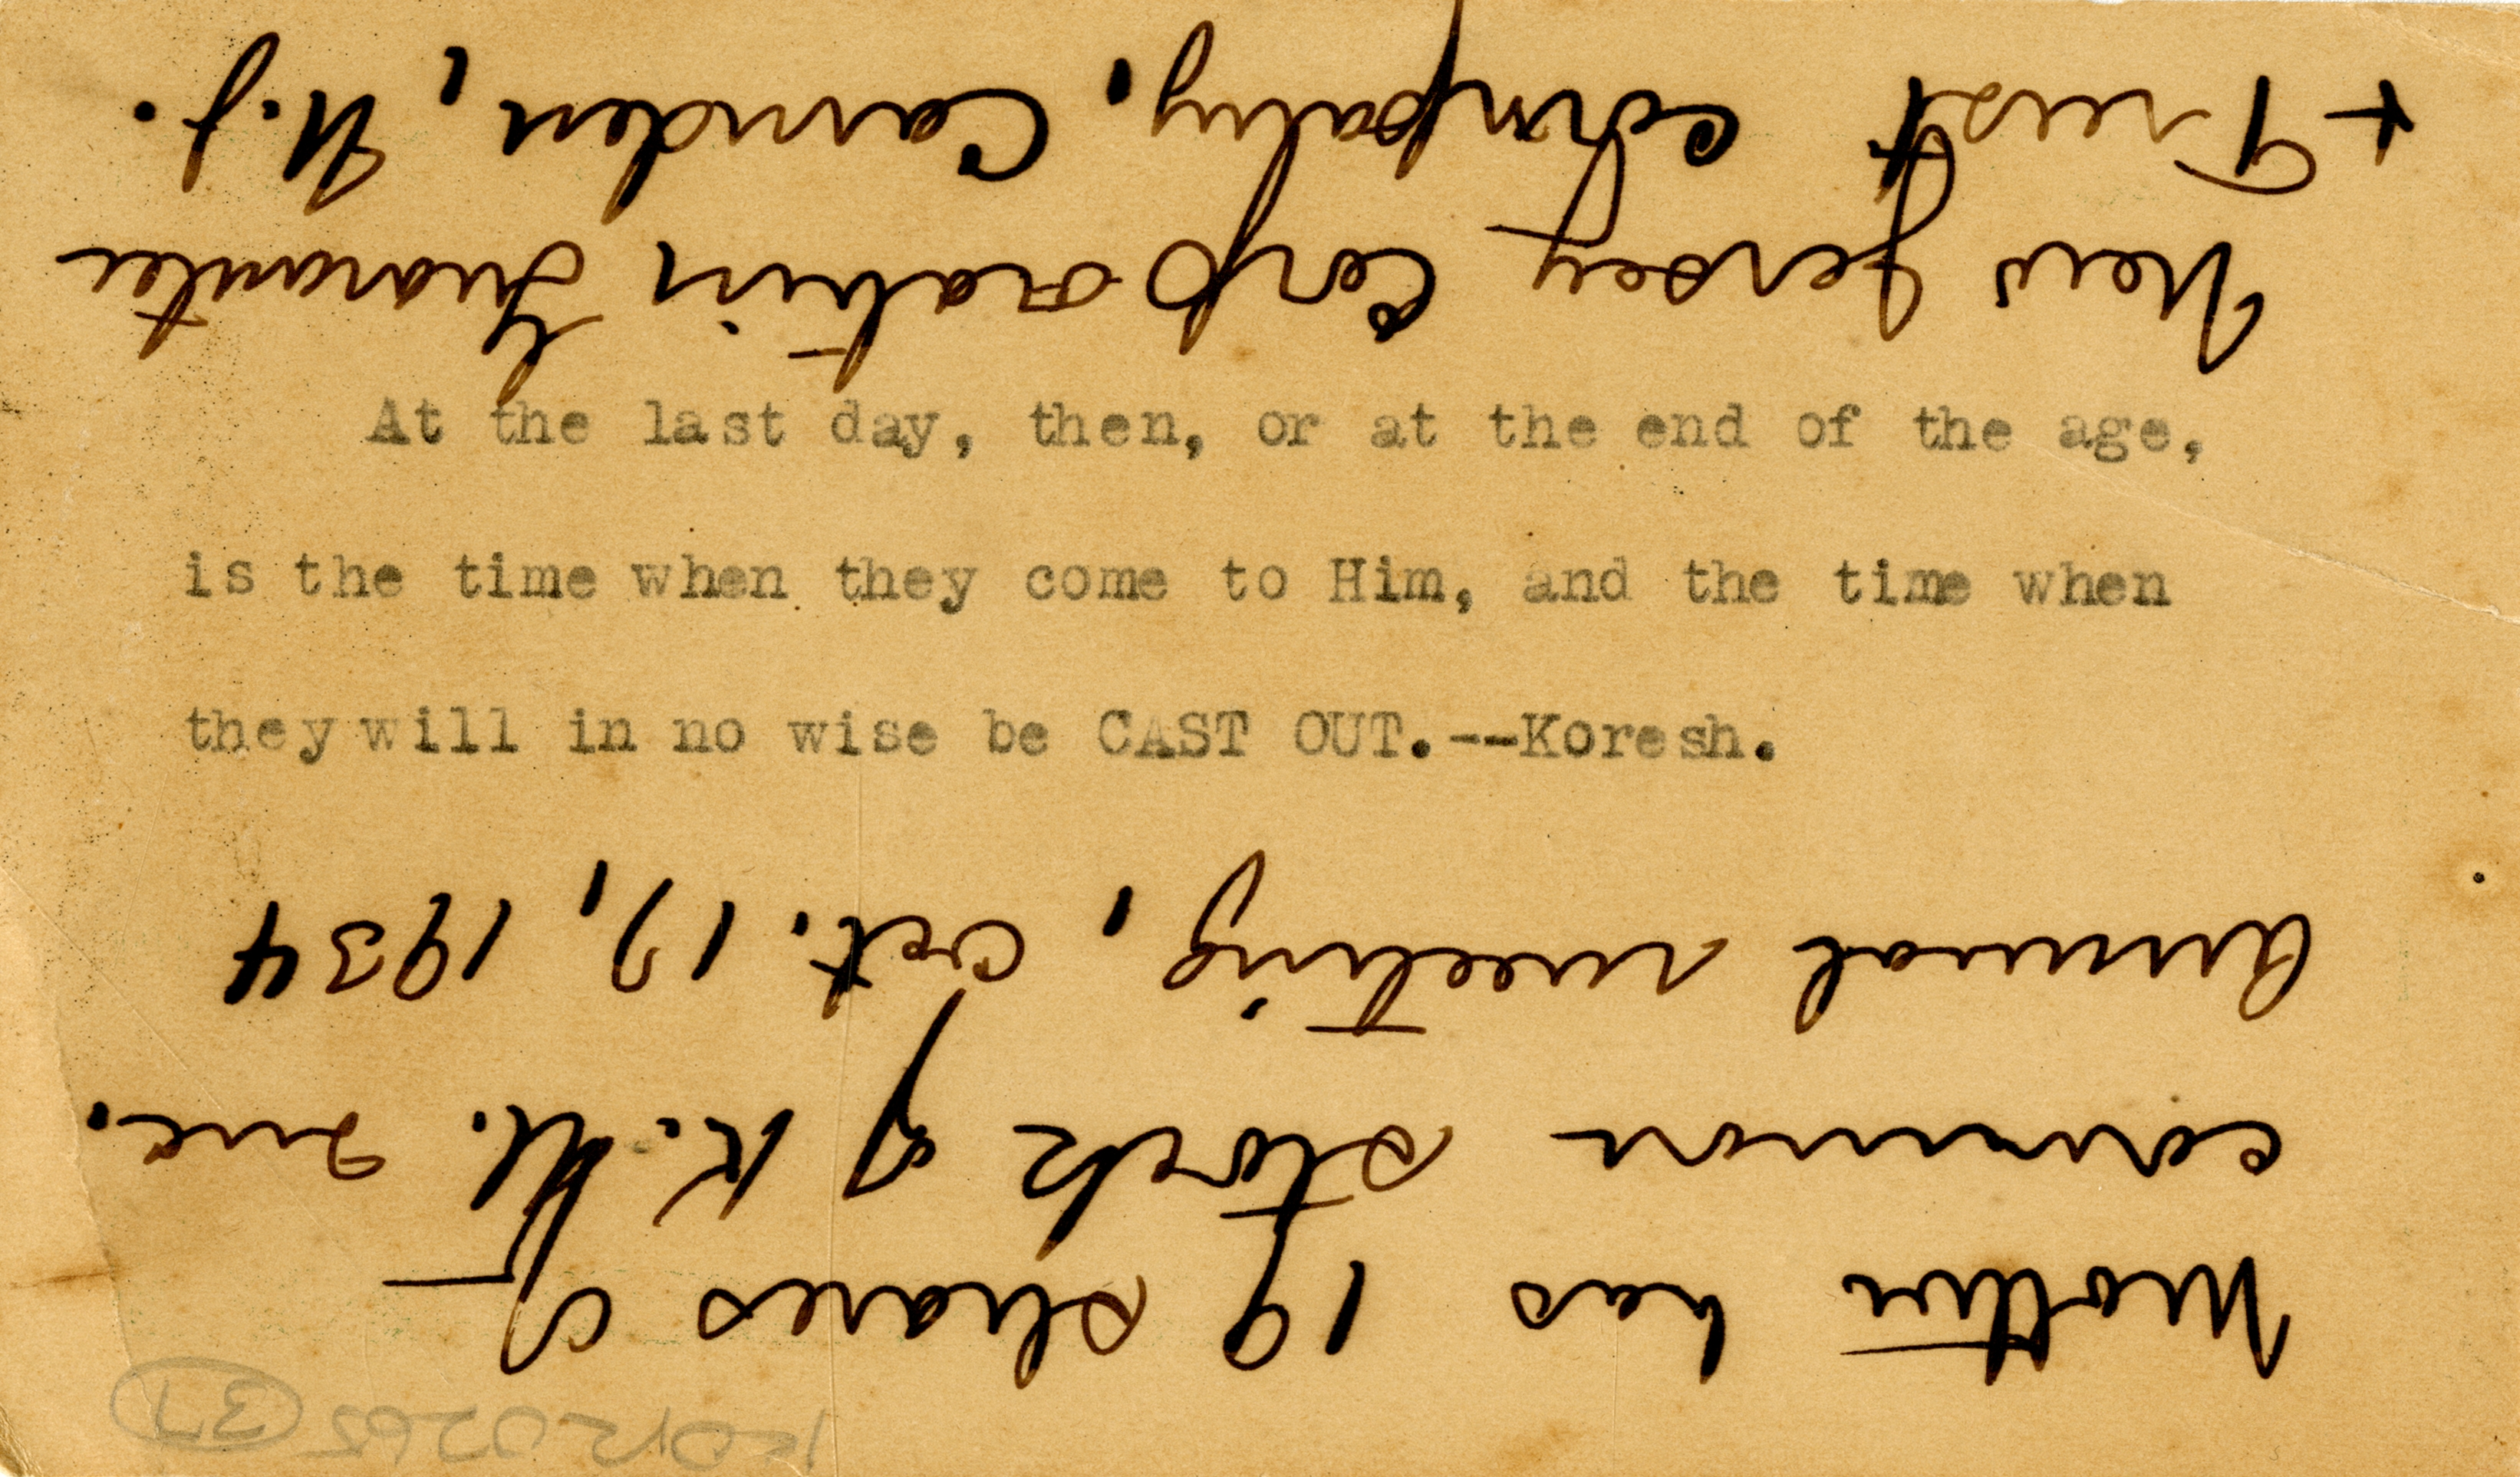 At the last day, then, or at the end of the age,
is the time when they come to Him, and the time when
they will in no wise be CAST OUT.--Koresh.
37
Mother has 19 shares of
common stock of K. U. Inc.
Annual meeting, Oct. 17, 1934
New Jersey Corporation Guarantee
+ Trust Company, Camden, N.J.